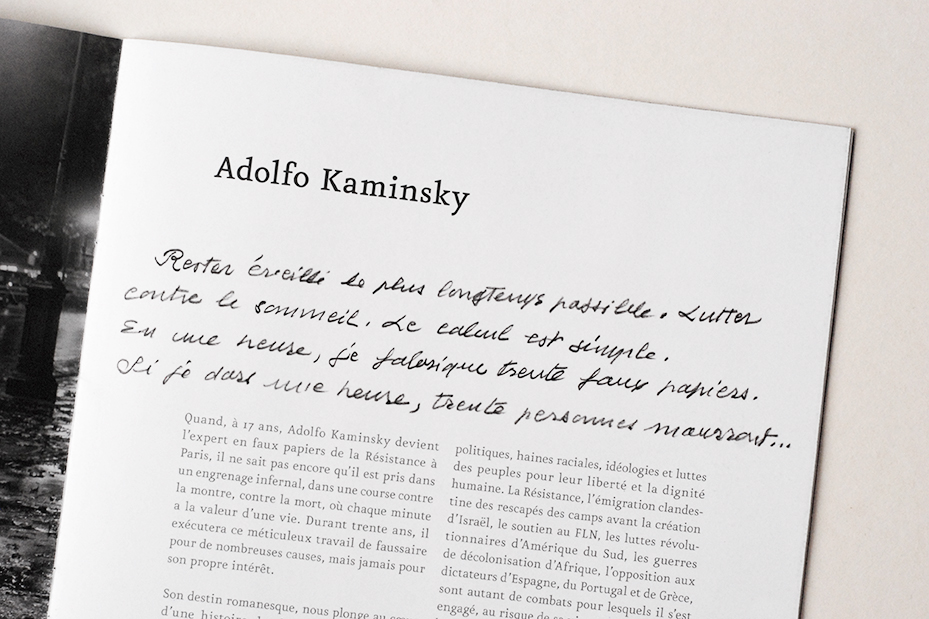 Adolfo Kaminsky
Rester éveillé le plus longtemps possible. Lutter
contre le sommeil. Le calcul est simple.
En une heure, je fabrique trente faux papiers.
Si je dors une heure, trente personnes mourront...
Quand, à 17 ans, Adolfo Kaminsky devient
l’expert en faux papiers de la Résistance à
Paris, il ne sait pas encore qu’il est pris dans
un engrenage infernal, dans une course contre
la montre, contre la mort, où chaque minute
a la valeur d’une vie. Durant trente ans, il
exécutera ce méticuleux travail de faussaire
pour de nombreuses causes, mais jamais pour
son propre intérêt.
Son destin romanesque, nous plonge au
d’une histoire
politiques, haines raciales, idéologies et luttes
des peuples pour leur liberté et la dignité
humaine. La Résistance, l’émigration clandes-
tine des rescapés des camps avant la création
d’Israël, le soutien au FLN, les luttes révolu-
tionnaires d’Amérique du Sud, les guerres
de décolonisation d’Afrique, l’opposition aux
dictateurs d’Espagne, du Portugal et de Grèce,
sont autant de combats pour lesquels il s’est
engagé, au risque de